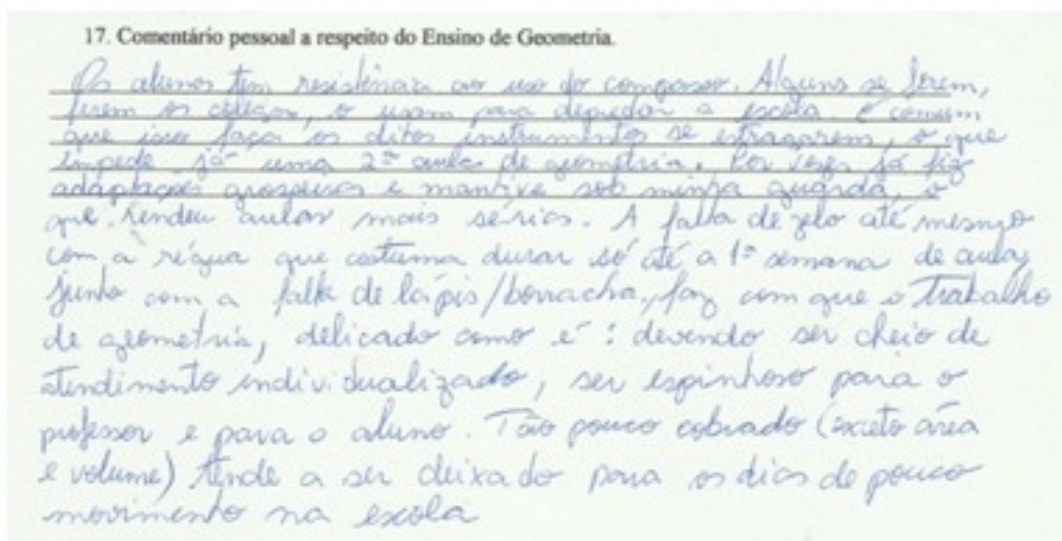 17. Comentário pessoal a respeito do Ensino de Geometria.
Os alunos tem resistência ao uso do compasso. Alguns se ferem,
ferem os colegas, o usam para depredar a escola. É comum
que isso faça os ditos instrumentos se estragarem, o que
impede já uma 2ª aula de geometria. Por vezes já fiz
adaptações grosseiras e mantive sob minha guarda, o
que rendeu aulas mais sérias. A falta de zelo até mesmo
com a régua que costuma durar só até a 1ª semana de aula,
junto com a falta de lápis/borracha, faz com que o trabalho
de geometria, delicado como é: devendo ser cheio de
atendimento individualizado, ser espinhoso para o
professor e para o aluno. Tão pouco cobrado (exceto área
e volume) tende a ser deixado para os dias de pouco
movimento na escola